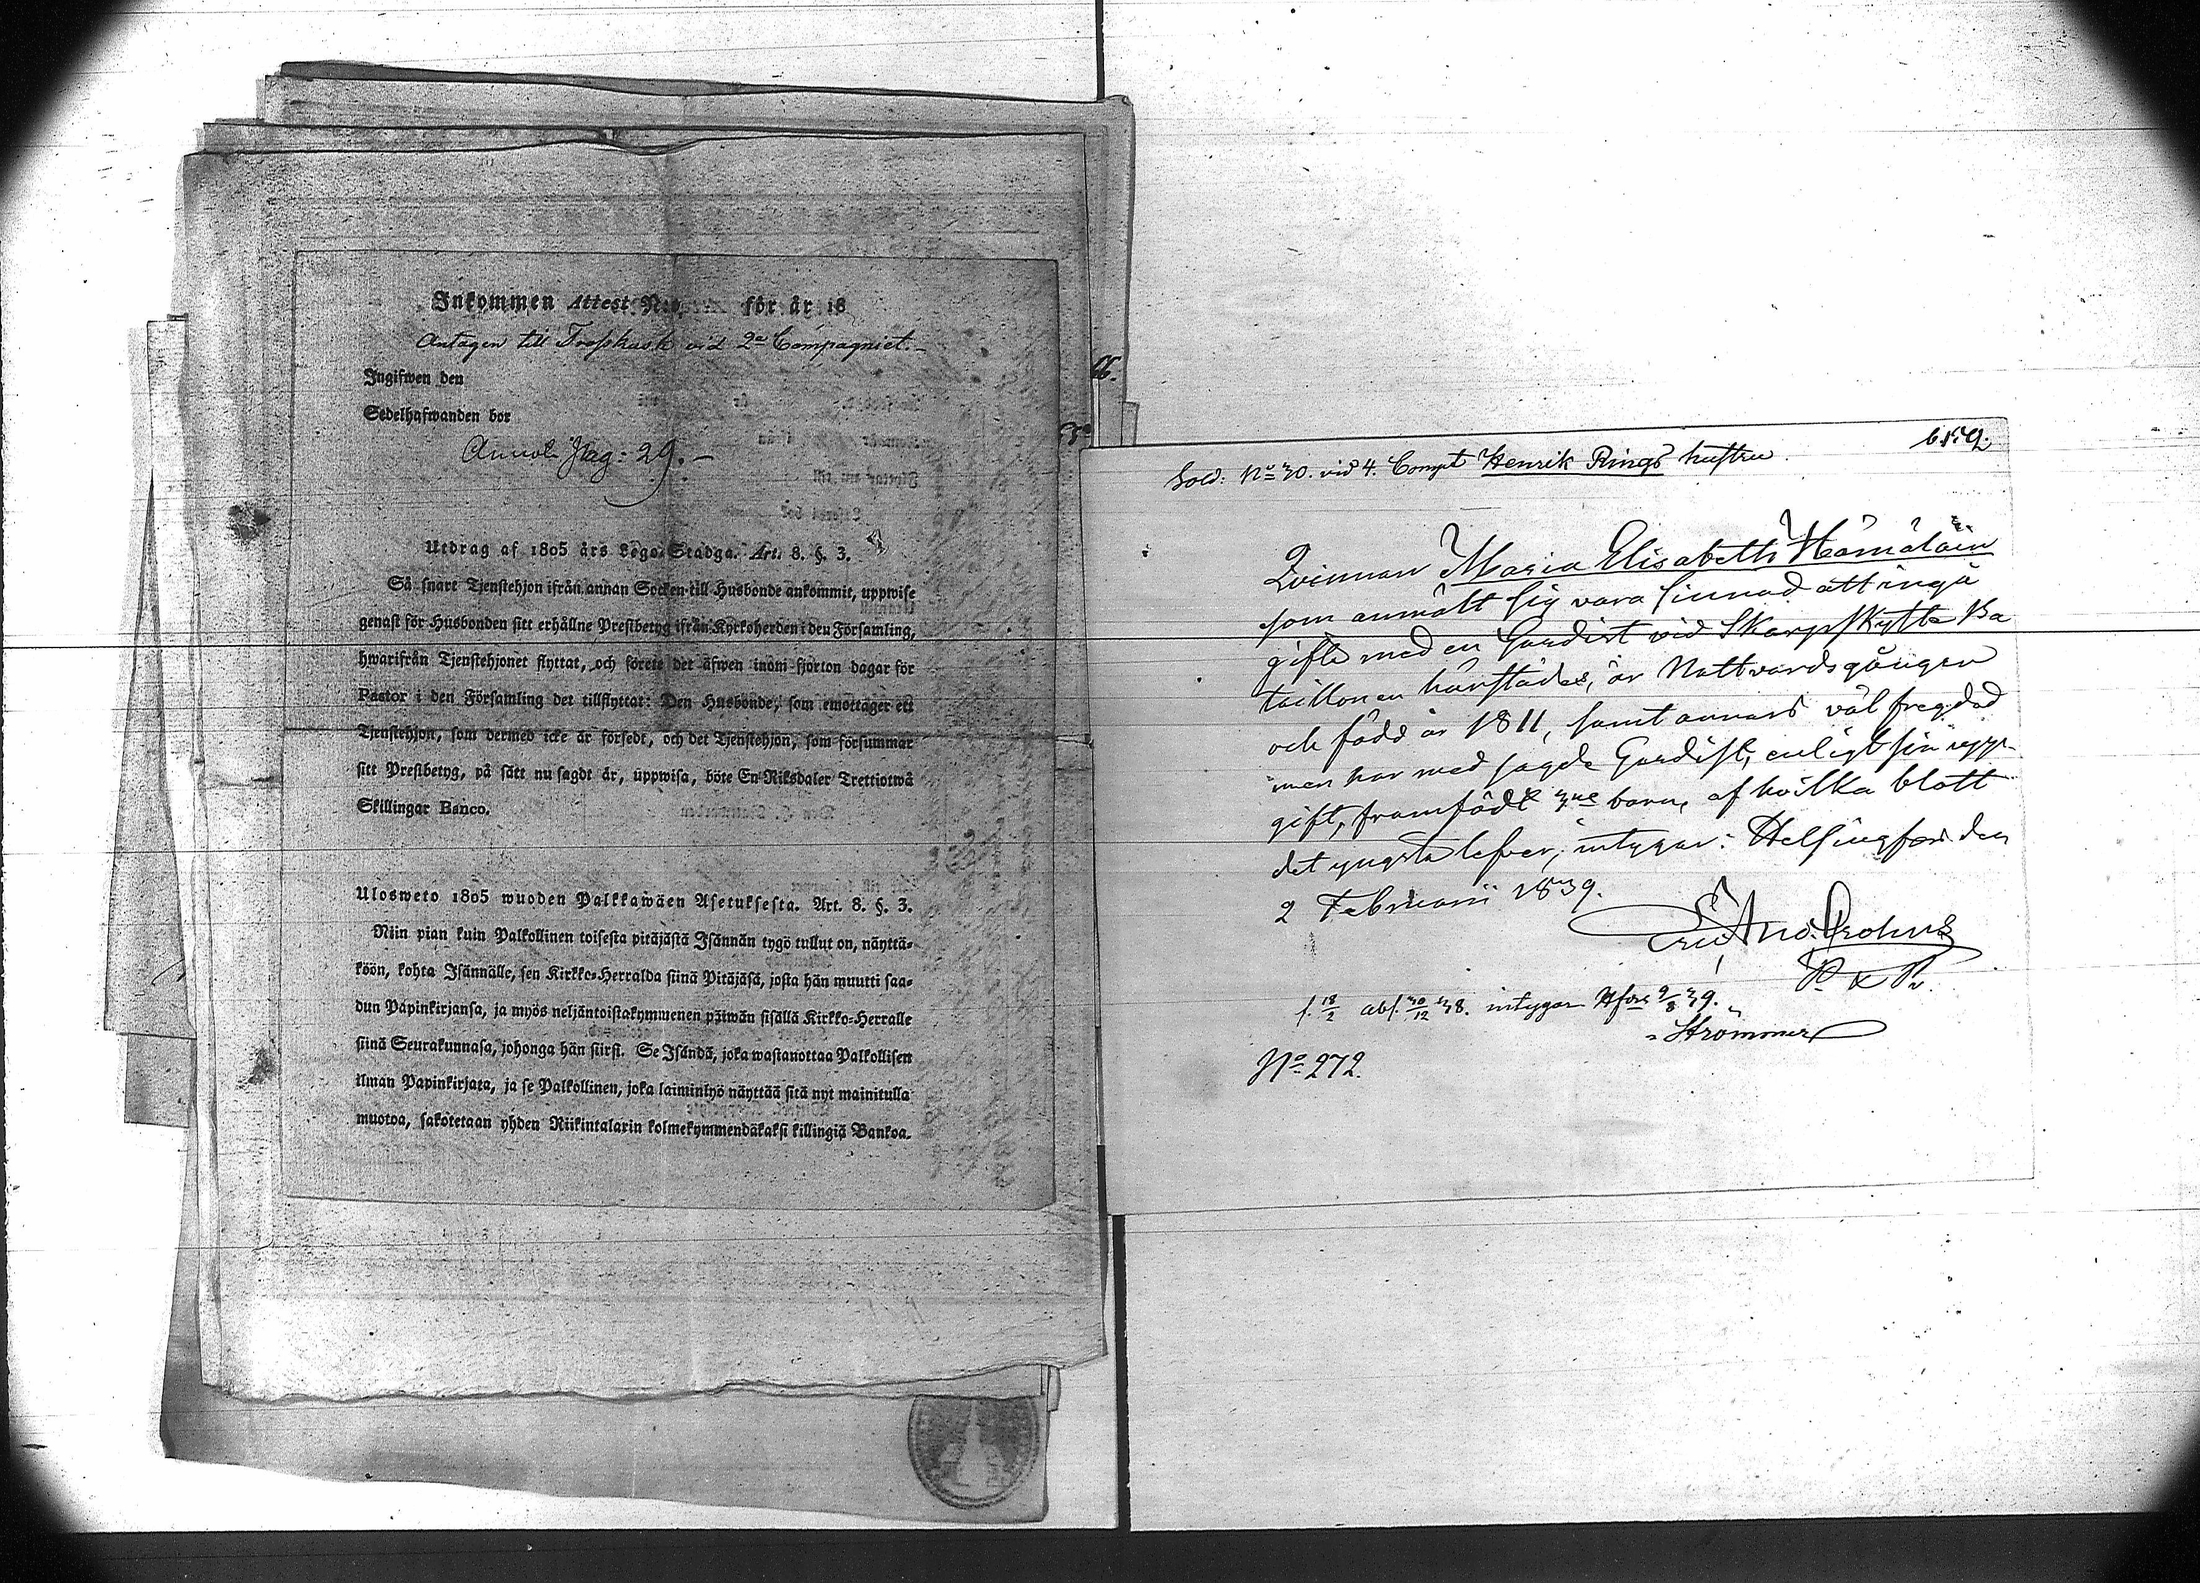 Inkommen Attest N:o för år 18
Antagen till Trosskusk vid 2a Compagniet.
Ingifwen den
Sedelhafwanden bor
Annot: Pag: 29.
Utdrag af 1805 års Lego-Stadga. Art. 8. §. 3.
Så snart Tjenstehjon ifrån annan Socken till Husbonde ankommit, uppwise
genast för Husbonden sitt erhållne Prestbetyg ifrån Kyrkoherden i den Församling,
hwarifrån Tjenstehjonet flyttat, och förete det äfwen inom fjorton dagar för
Pastor i den Församling det tillflyttat: Den Husbonde, som emottager ett
Tjenstehjon, som dermed icke är försedt, och det Tjenstehjon, som försummar
sitt Prestbetyg, på sätt nu sagdt är, uppwisa, böte En Riksdaler Trettiotwå
Skillingar Banco.
Ulosweto 1805 wuoden Palkkawäen Asetuksesta. Art. 8. §. 3.
Niin pian kuin Palkollinen toisesta pitäjästä Isännän tygö tullut on, näyttä-
köön, kohta Isännälle, sen Kirkko-Herralda siinä Pitäjäsä, josta hän muutti saa-
dun Papinkirjansa, ja myös neljäntoistakymmenen päiwän sisällä Kirkko-Herralle
siinä Seurakunnasa, johonga hän siirsi. Se Isändä, joka wastanottaa Palkollisen
ilman Papinkirjata, ja se Palkollinen, joka laiminlyö näyttää sitä nyt mainitulla
muotoa, sakotetaan yhden Riikintalarin kolmekymmendäkaksi killingiä Bankoa.
66.
Sold: No 30. vid 4. Compt Henrik Rings hustru.
Qvinnan Maria Elisabeth Hämäläin
som anmält sig vara sinnad att ingå
gifte med en Gardist vid Skarpskytte Ba
taillonen härstädes, är Nattvardsgången
och född år 1811, samt annars väl fregdad
men har med sagde Gardist, enligt sin uppgift,
gift, framfödt 3ne barn, af hvilka blott
det yngsta lefver, intygar: Helsingfors den
2 Februarii 1839.
P. & Pr.
f. 18/2 abs. 30/12 38. intygar Hfors 9/8 39.
Strömmer
No 272.